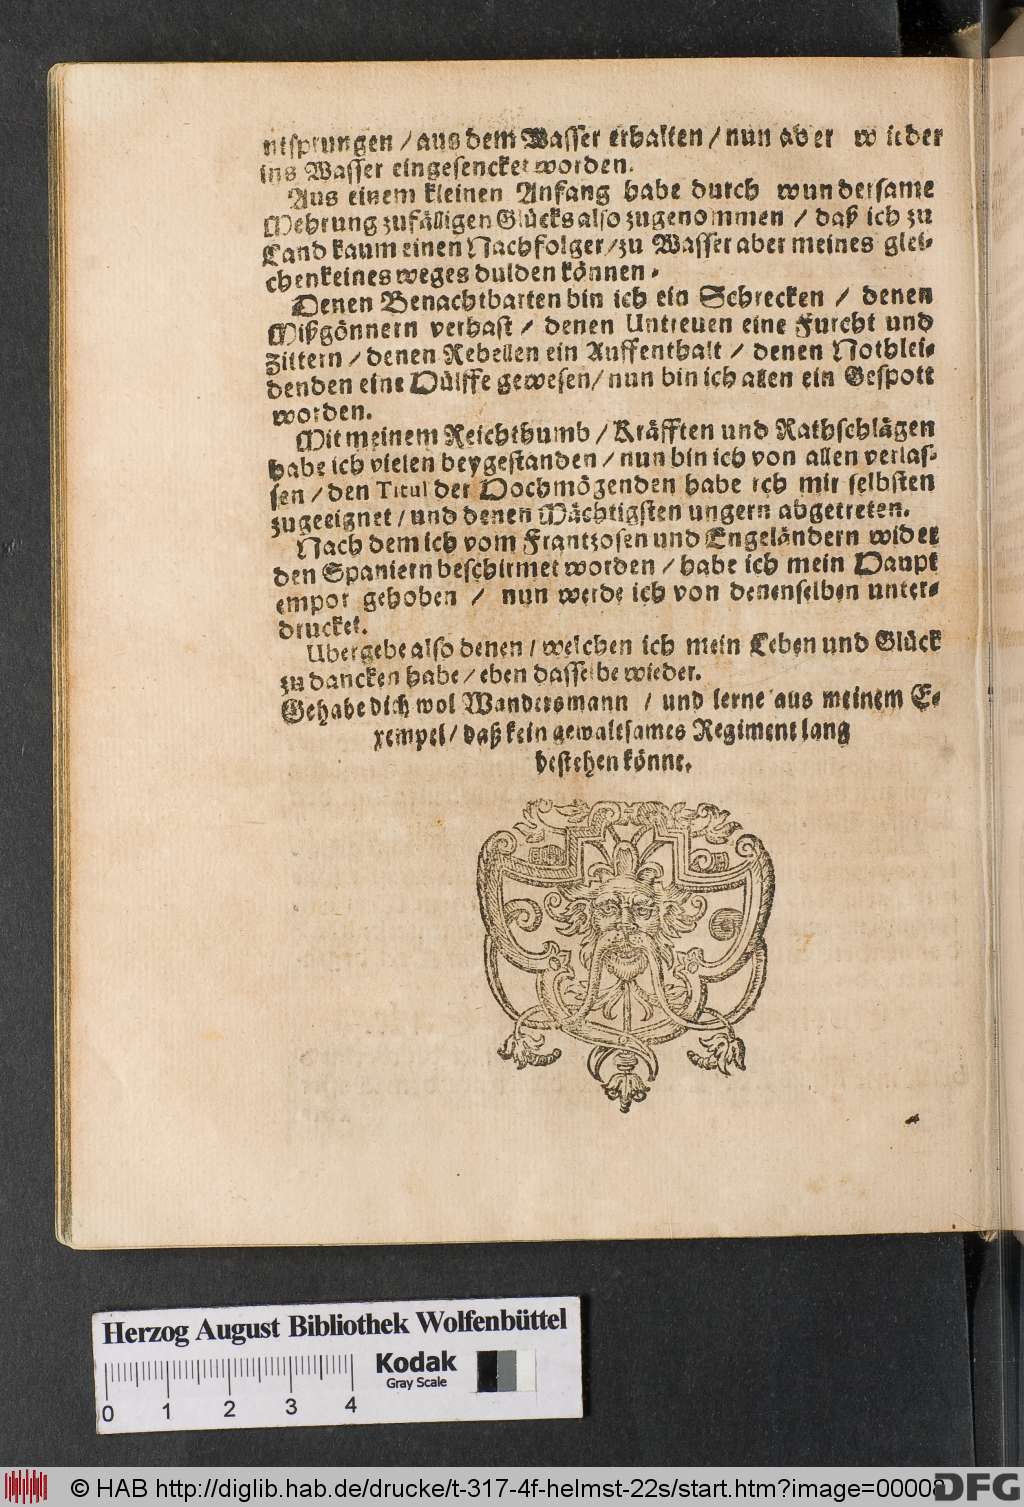 ntsprungen / aus dem Wasser erhalten / nun aber wieder
ins Wasser eingesencket worden.
Aus einem kleinen Anfang habe durch wundersame
Mehrung zufälligen Glücks also zugenommen / daß ich zu
Land kaum einen Nachfolger / zu Wasser aber meines glei-
chen keines weges dulden können.
Denen Benachtbarten bin ich ein Schrecken / denen
Mißgönnern verhast / denen Untreuen eine Furcht und
Zittern / denen Rebellen ein Auffenthalt / denen Nothlei-
denden eine Hülffe gewesen / nun bin ich allen ein Gespott
worden.
Mit meinem Reichthumb / Kräfften und Rathschlägen
habe ich vielen beygestanden / nun bin ich von allen verlas-
sen / den Titul der Hochmögenden habe ich mir selbsten
zugeeignet / und denen Mächtigsten ungern abgetreten.
Nach dem ich vom Frantzosen und Engeländern wider
den Spaniern beschirmet worden / habe ich mein Haupt
empor gehoben / nun werde ich von denenselben unter-
drucket.
Ubergebe also denen / welchen ich mein Leben und Glück
zu dancken habe / eben dasselbe wieder.
Gehabe dich wol Wandersmann / und lerne aus meinem E-
xempel / daß kein gewaltsames Regiment lang
bestehen könne.
Herzog August Bibliothek Wolfenbüttel
Kodak
Gray Scale
0 1 2 3 4
© HAB http://diglib.hab.de/drucke/t-317-4f-helmst-22s/start.htm?image=00008
DFG